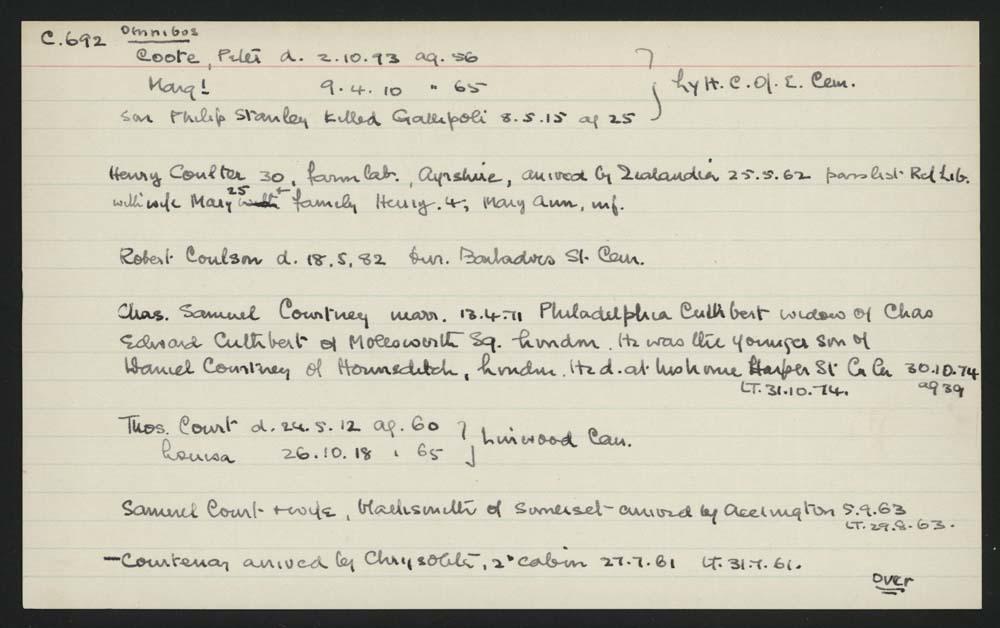 C.692 Omnibos
Coote, Peter d. 2.10.93 ag. 56
Margt 9.4.10 " 65 } Ly H. C. Of. E. Cem.
son Philip Stanley Killed Gallipoli 8.5.15 ag 25
Henry Coulter 30, farm lab., Ayrshire, arrived by Zealandia 25.5.62 pass list Ref Lib.
with wife Mary 25 family Henry. 4, Mary Ann, inf.
Robert Coulson d. 18.5.82 bur. Barbadoes St. Cem.
Chas. Samuel Courtney marr. 13.4.71 Philadelphia Cuthbert widow of Chas
Edward Cuthbert of Molesworth Sq. London. He was the younger son of
Daniel Courtney of Hounsditch, London. He d. at his home Harper St Ca Ca 30.10.74
LT. 31.10.74. ag 39
Thos. Court d. 24.5.12 ag. 60
Louisa 26.10.18 " 65 } Linwood Cem.
Samuel Court + wife, blacksmith of Somerset arrived by Accrington 5.9.63
LT. 29.8.63.
— Courtenay arrived by Chrysolite, 2° cabin 27.7.61 LT. 31.7.61.
Over